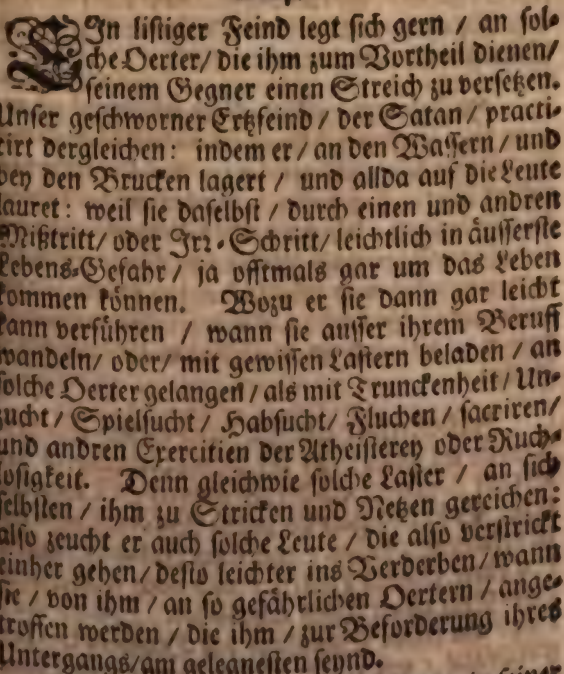 EIn listiger Feind legt sich gern / an sol-
che Oerter / die ihm zum Vortheil dienen/
seinem Gegner einen Streich zu versetzen.
Unser geschworner Ertzfeind / der Satan / practi-
cirt dergleichen: indem er / an den Wassern / und
bey den Brucken lagert / und allda auf die Leute
lauret: weil sie daselbst / durch einen und andren
Mißtritt / oder Irr-Schritt / leichtlich in äusserste
Lebens-Gefahr / ja offtmals gar um das Leben
kommen können. Wozu er sie dann gar leicht
kann verführen / wann sie ausser ihrem Beruff
wandeln / oder / mit gewissen Lastern beladen / an
solche Oerter gelangen / als mit Trunckenheit / Un-
zucht / Spielsucht / Habsucht / Fluchen / sacriren/
und andren Exercitien der Atheisterey oder Ruch-
losigkeit. Denn gleichwie solche Laster / an sich
selbsten / ihm zu Stricken und Netzen gereichen:
also zeucht er auch solche Leute / die also verstrickt
einher gehen / desto leichter ins Verderben / wann
sie / von ihm / an so gefährlichen Oertern / ange-
troffen werden / die ihm / zur Beforderung ihres
Untergangs / am gelegnesten seynd.